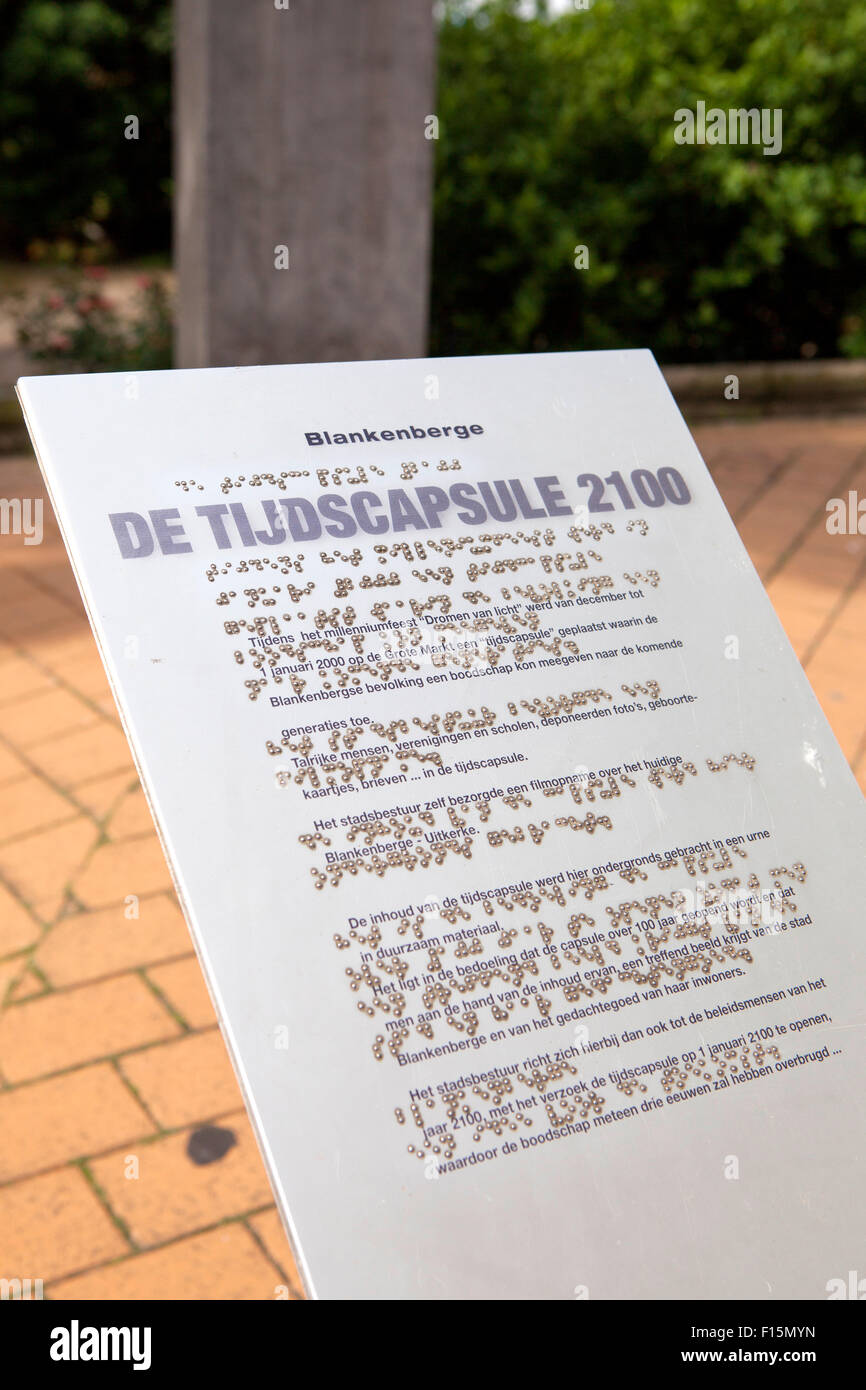 Blankenberge
DE TIJDSCAPSULE 2100
Tijdens het millenniumfeest "Dromen van licht" werd van december tot
1 januari 2000 op de Grote Markt een "tijdscapsule" geplaatst waarin de
Blankenbergse bevolking een boodschap kon meegeven naar de komende
generaties toe.
Talrijke mensen, verenigingen en scholen, deponeerden foto's, geboorte-
kaartjes, brieven ... in de tijdscapsule.
Het stadsbestuur zelf bezorgde een filmopname over het huidige
Blankenberge - Uitkerke.
De inhoud van de tijdscapsule werd hier ondergronds gebracht in een urne
in duurzaam materiaal.
Het ligt in de bedoeling dat de capsule over 100 jaar geopend wordt en dat
men aan de hand van de inhoud ervan, een treffend beeld krijgt van de stad
Blankenberge en van het gedachtegoed van haar inwoners.
Het stadsbestuur richt zich hierbij dan ook tot de beleidsmensen van het
jaar 2100, met het verzoek de tijdscapsule op 1 januari 2100 te openen,
waardoor de boodschap meteen drie eeuwen zal hebben overbrugd ...
alamy
Image ID: F15MYN
www.alamy.com